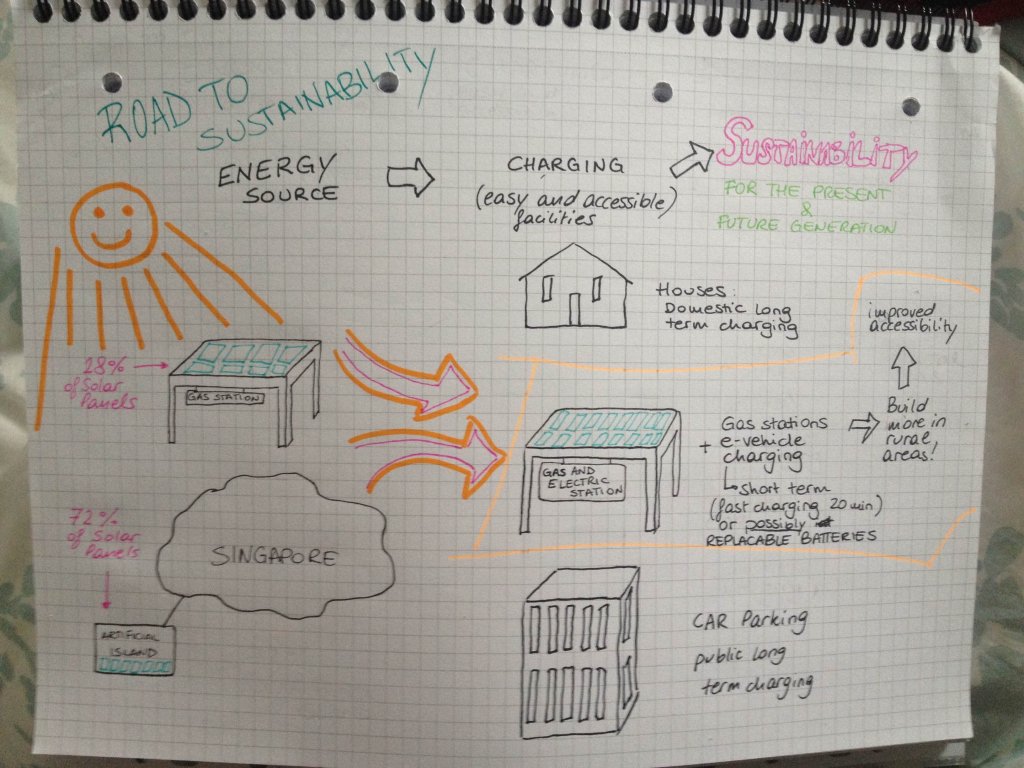 ROAD TO
SUSTAINABILITY
ENERGY
SOURCE
CHARGING
(easy and accessible)
facilities
SUSTAINABILITY
FOR THE PRESENT
&
FUTURE GENERATION
Houses:
Domestic long
term charging
improved
accessibility
28%
of Solar
Panels
GAS STATION
GAS AND
ELECTRIC
STATION
Gas stations
+ e-vehicle
charging
short term
(fast charging 20 min)
or possibly
REPLACABLE BATTERIES
Build
more in
rurae,
areas!
72%
of Solar
Panels
SINGAPORE
ARTIFICIAL
ISLAND
CAR Parking
public long
term charging